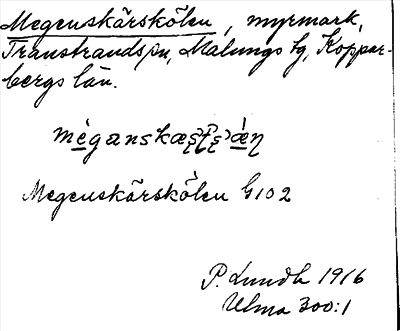 Megenskärskölen, myrmark,
Transtrands sn, Malungs tg, Koppar-
bergs län.
Megenskärskölen G102
P. Lundh 1916
Ulma 300:1